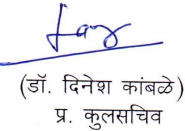 (डॉ. दिनेश कांबळे)
प्र. कुलसचिव